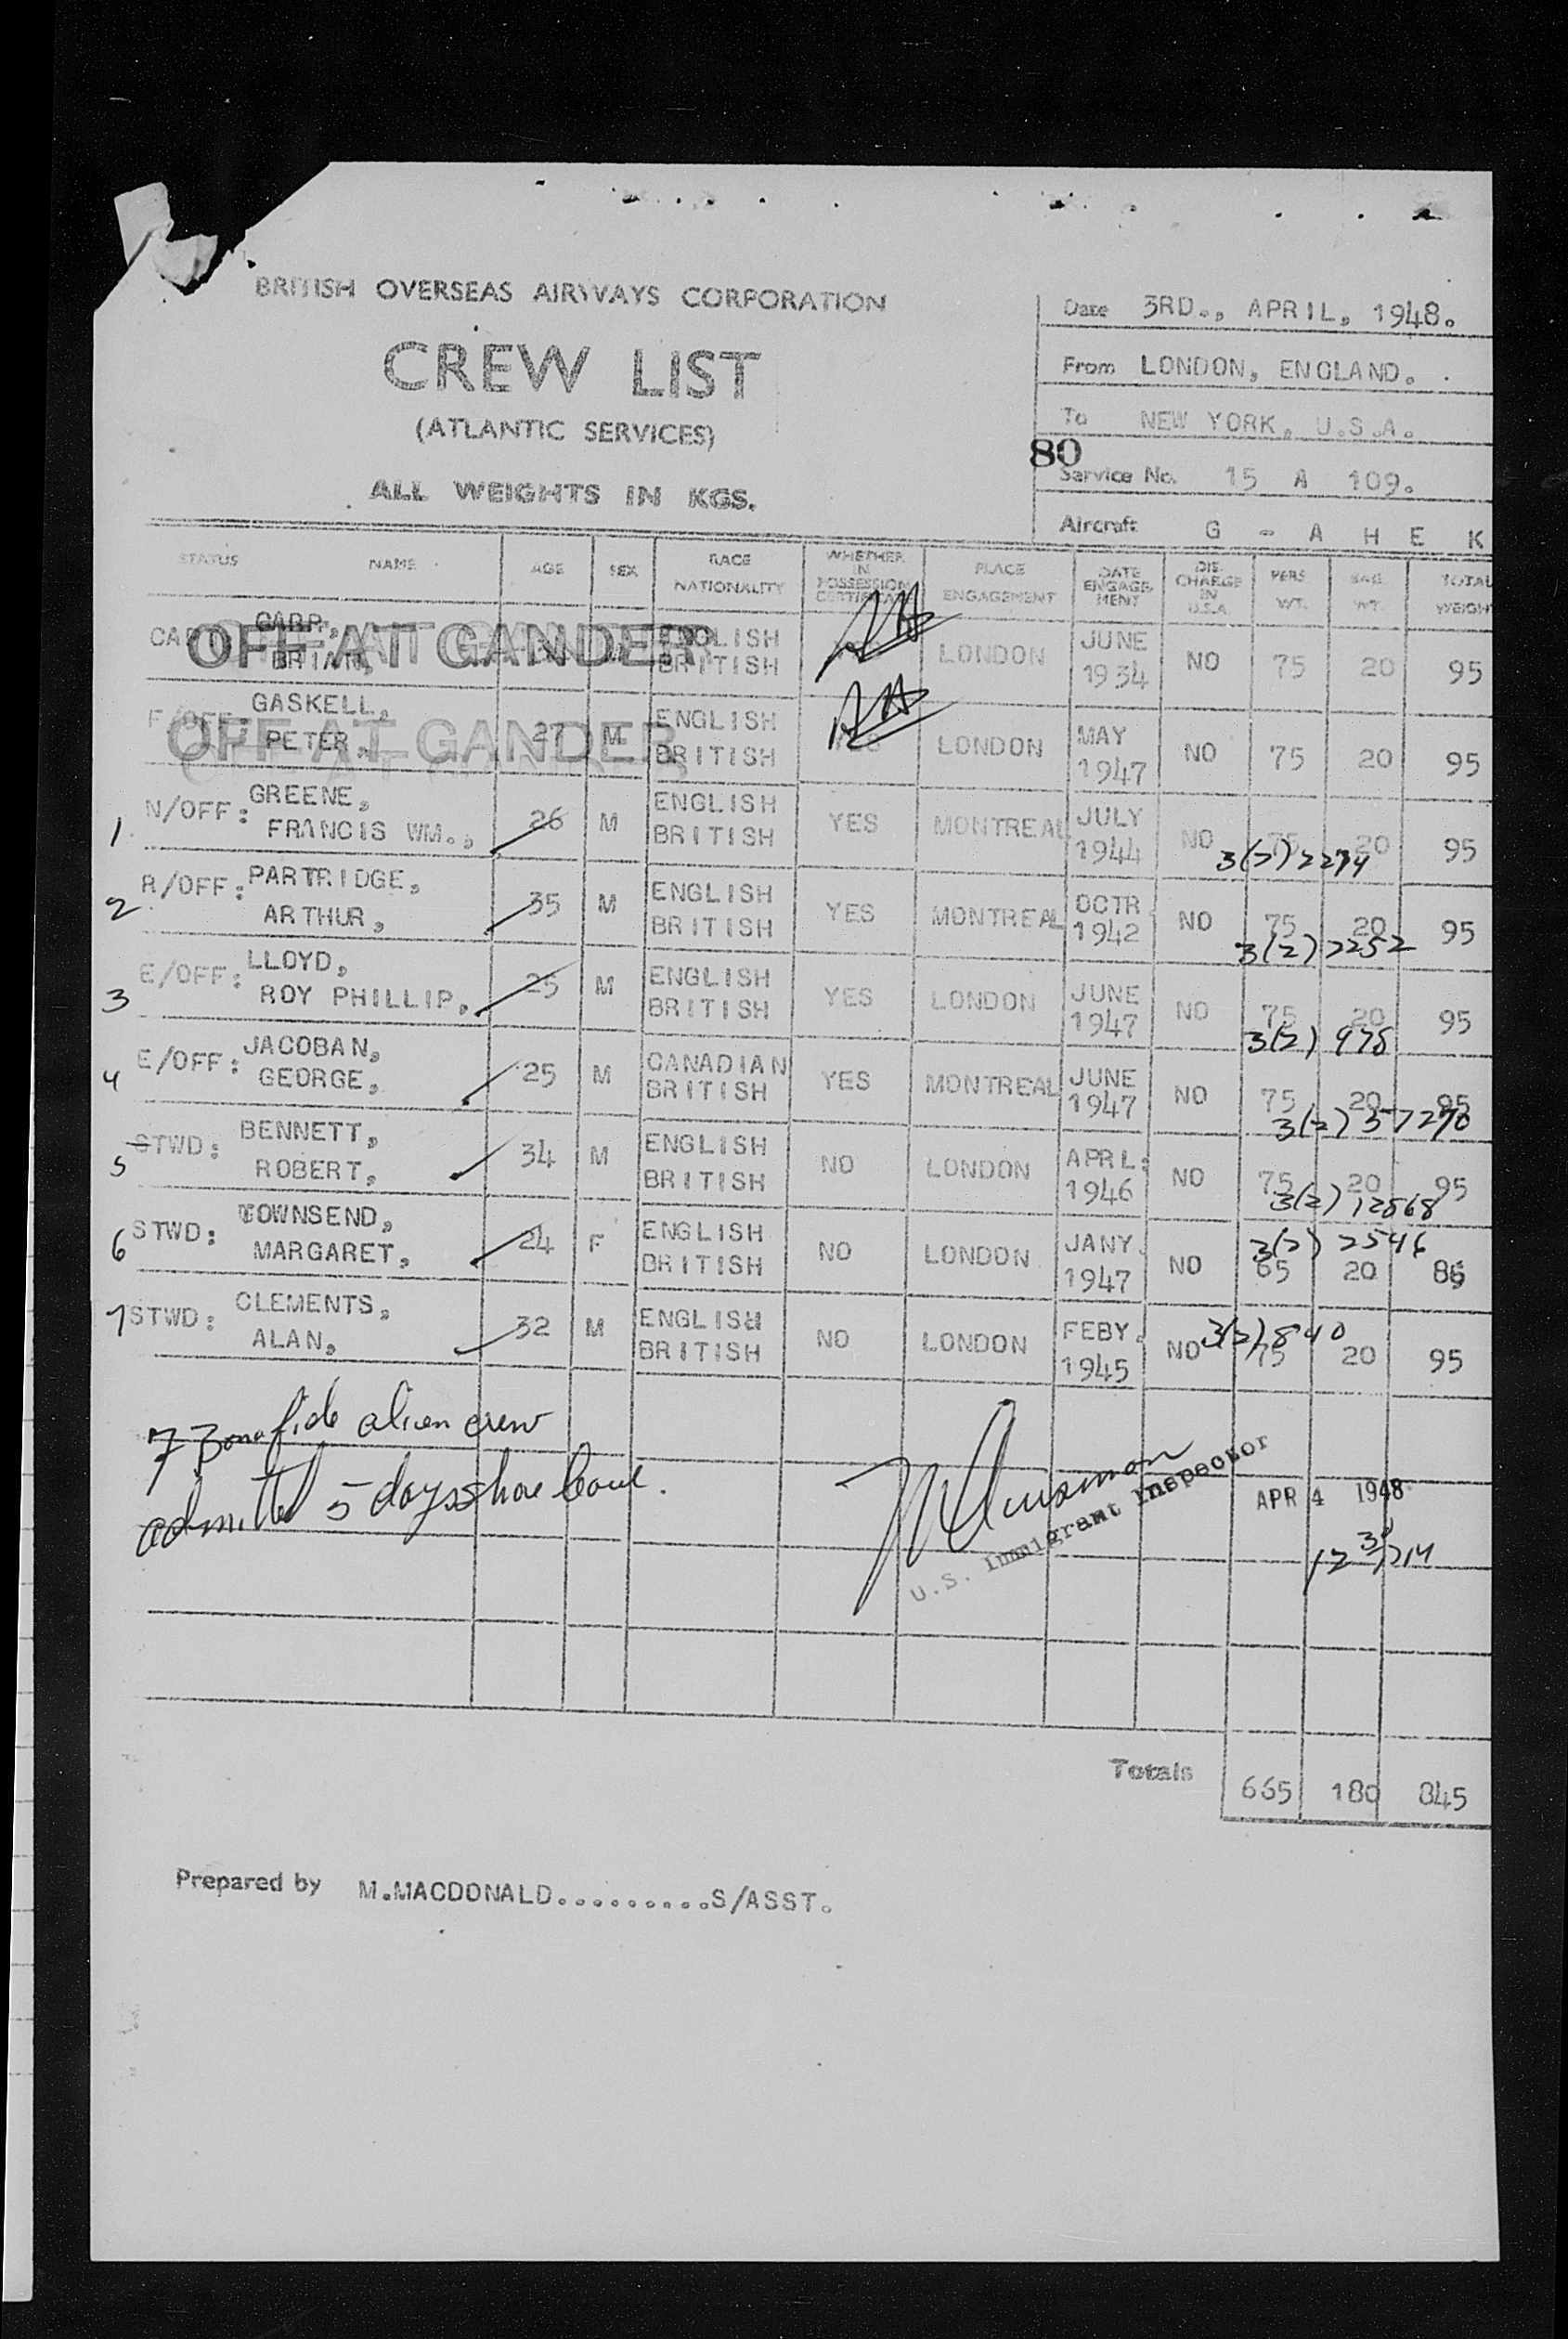 BRITISH OVERSEAS AIRWAYS CORPORATION
CREW LIST
(ATLANTIC SERVICES)
ALL WEIGHTS IN KGS.
Date 3RD., APRIL, 1948.
From LONDON, ENGLAND.
To NEW YORK, U.S.A.
80
Service No. 15 A 109.
Aircraft G - A H E K
STATUS NAME AGE SEX RACE NATIONALITY WHETHER IN POSSESSION CERTIFICATE PLACE ENGAGEMENT DATE ENGAGE-MENT DIS-CHARGE IN U.S.A. PERS. WT. BAG. WT. TOTAL WEIGHT
CARR, ENGLISH JUNE
BRIAN, BRITISH LONDON 1934 NO 75 20 95
OFF AT GANDER
F/OFF: GASKELL, 27 M ENGLISH MAY
PETER, BRITISH LONDON 1947 NO 75 20 95
OFF AT GANDER
1 N/OFF: GREENE, 26 M ENGLISH YES MONTREAL JULY NO 75 20 95
FRANCIS WM., BRITISH 1944 3(2) 2274
2 R/OFF: PARTRIDGE, 35 M ENGLISH YES MONTREAL OCTR. NO 75 20 95
ARTHUR, BRITISH 1942 3(2) 2252
3 E/OFF: LLOYD, 25 M ENGLISH YES LONDON JUNE NO 75 20 95
ROY PHILLIP, BRITISH 1947 3(2) 978
4 E/OFF: JACOBAN, 25 M CANADIAN YES MONTREAL JUNE NO 75 20 95
GEORGE, BRITISH 1947 3(2) 57270
5 STWD: BENNETT, 34 M ENGLISH NO LONDON APRL: NO 75 20 95
ROBERT, BRITISH 1946 3(2) 12868
6 STWD: TOWNSEND, 24 F ENGLISH NO LONDON JANY. NO 3(2) 2546
MARGARET, BRITISH 1947 65 20 85
7 STWD: CLEMENTS, 32 M ENGLISH NO LONDON FEBY. NO 3(2) 840
ALAN, BRITISH 1945 75 20 95
7 Bonafide alien crew
admitted 5 days shore leave.
U.S. Immigrant Inspector
APR 4 1948
Totals 665 180 845
Prepared by M.MACDONALD..........S/ASST.